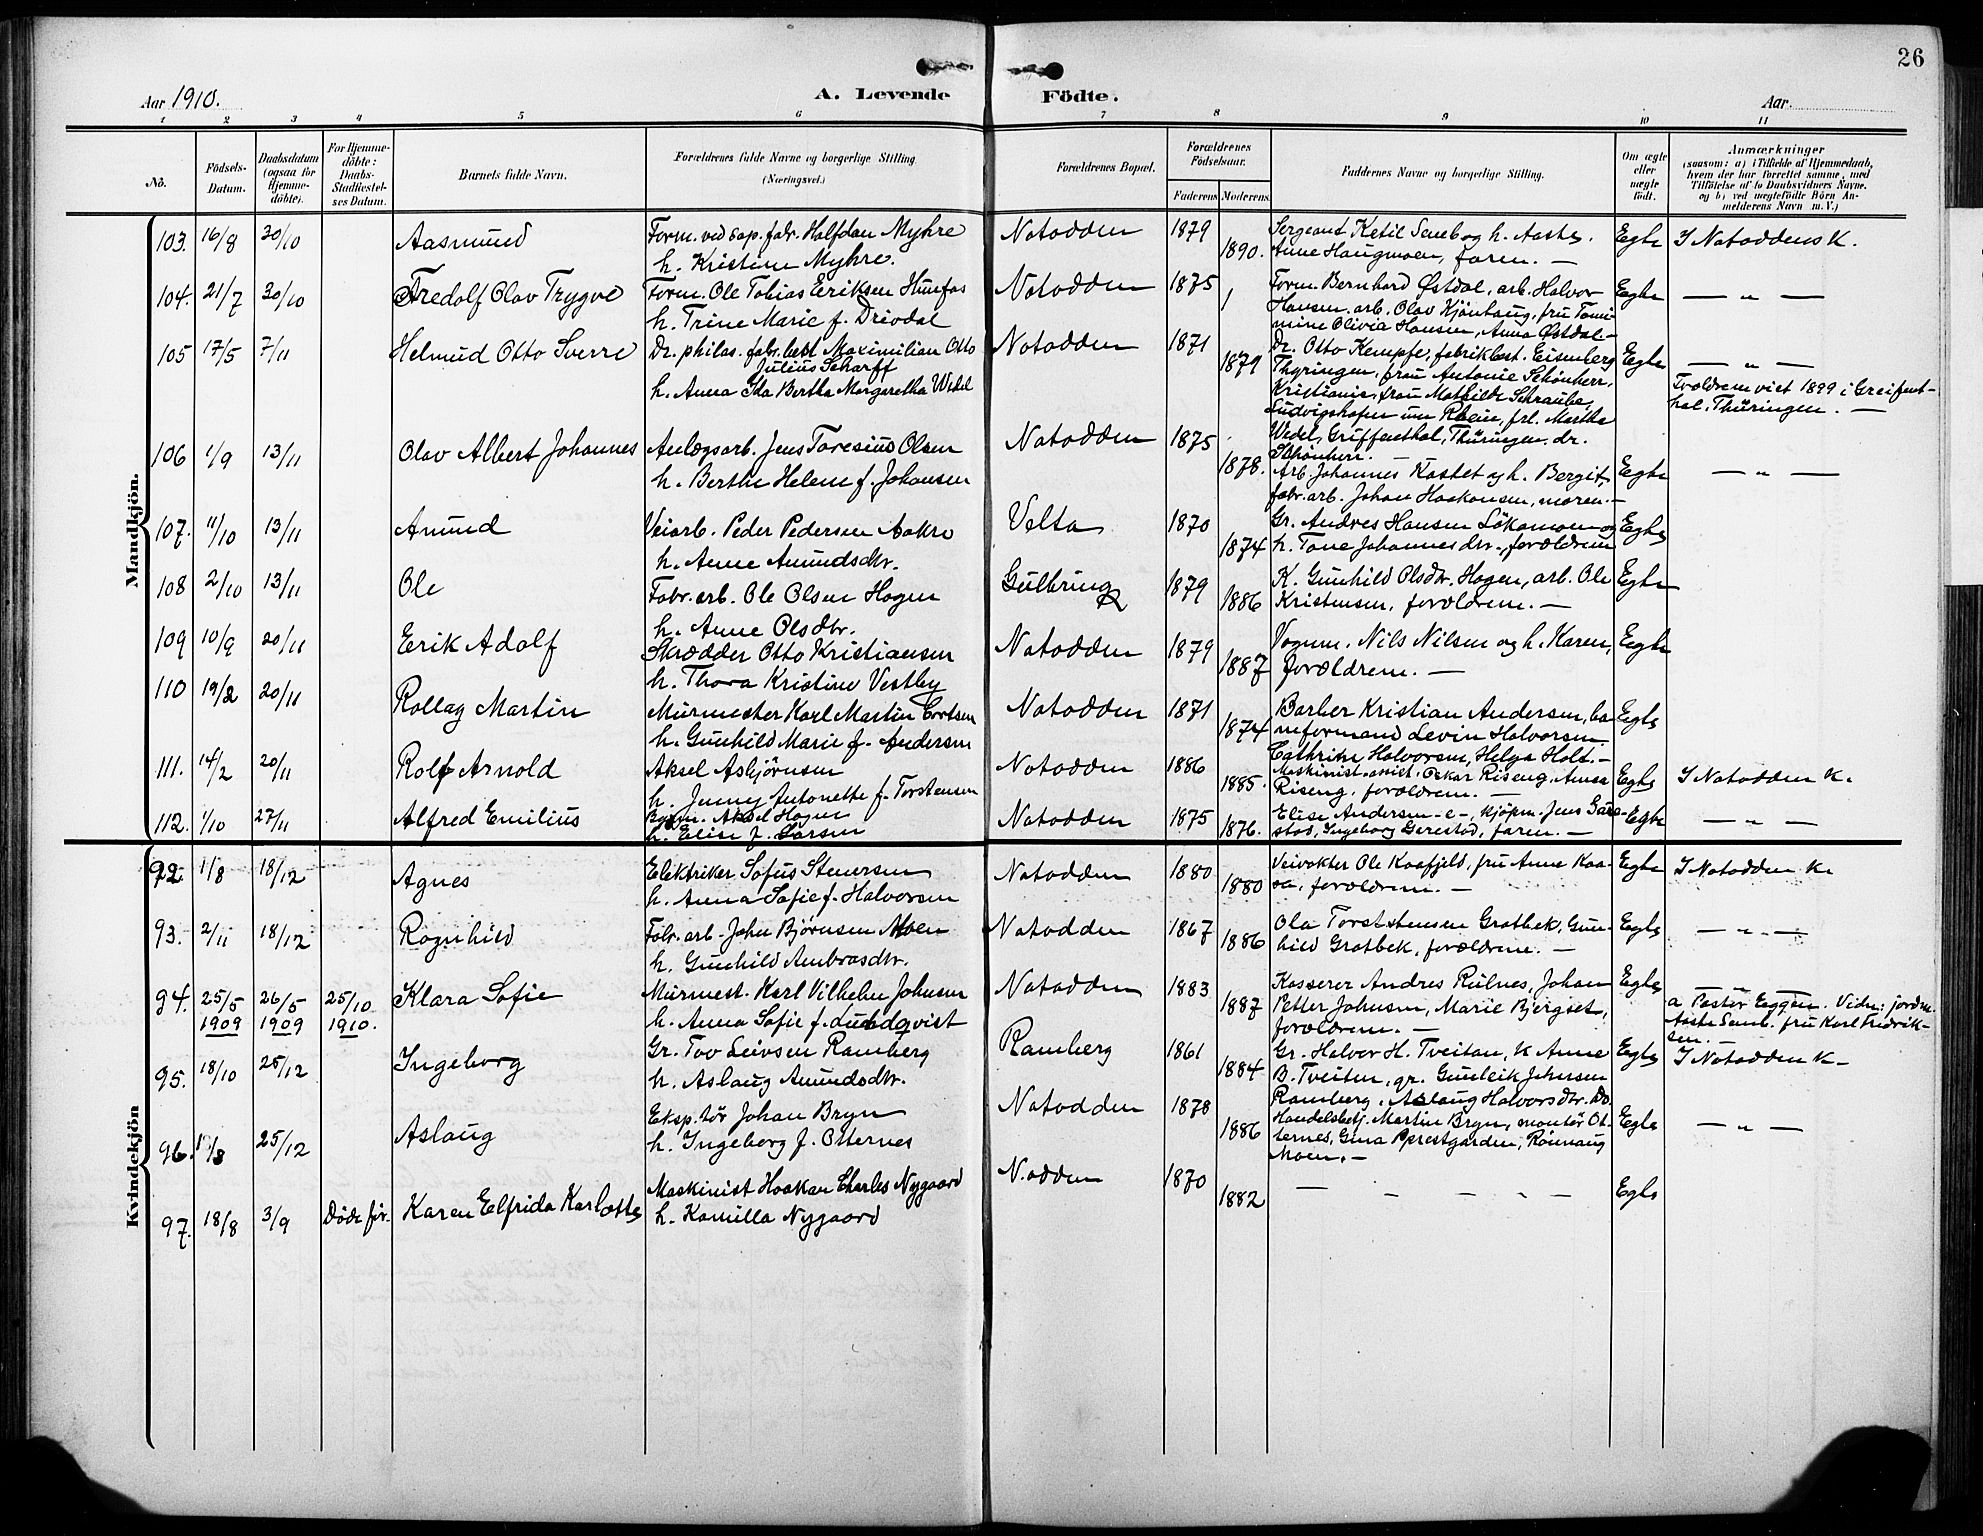 26
Aar 1910.
A. Levende Födte.
Aar.
1 2 3 4 5 6 7 8 9 10 11
No.
Födsels-Datum.
Daabsdatum (ogsaa for Hjemme-döbte).
For Hjemme-döbte: Daabs-Stadfæstel-ses Datum.
Barnets fulde Navn.
Forældrenes fulde Navne og borgerlige Stilling. (Næringsvei.)
Forældrenes Bopæl.
Forældrenes Födselsaar.
Faderens
Moderens
Faddernes Navne og borgerlige Stilling.
Om ægte eller uægte födt.
Anmærkninger
(saasom: a) i Tilfælde af Hjemmedaab,
hvem der har forrettet samme, med
Tilföielse af to Daabsvidners Navne.
og b) ved uægtefödte Börn An-
melderens Navn m. V.)
Mandkjön.
103. 16/8 30/10 Aasmund
Form. ved sap. fabr. Halfdan Myhre
h. Kristine Myhre.
Notodden 1879 1890.
Sergeant Ketil Semb og h. Aaste,
Anne Haugmoen, faren. —
Egte I Notoddens K.
104. 21/7 30/10 Fredolf Olav Trygve
Form. Ole Tobias Eriksen Hunfos
h. Trine Marie f. Driodal
Notodden 1875
Form. Bernhard Østdal, arb. Halvor
Hansen, arb. Olav Kjöntaug, fru Tomi-
mine Olivia Hansen, Anna Østdal —
Egte — " —
105 17/5 7/11 Helmud Otto Sverre
Dr. philos. fabr. best Maximilian Otto
Julius Scharff
h. Anna Ida Bertha Margaretha Wedel
Notodden 1871 1879
Dr. Otto Kempfe, fabrikbest. Eisenberg
Thyringen, frau Antonie Schönherr,
Kristiania, frau Mathilde Schraube,
Ludvigshafen um Rhein, frl. Martha
Wedel, Griffenthal, Thüringen, dr.
Schönherr. —
Egte — " —
Forældrene viet 1899 i Greifent-
hal, Thüringen. —
106 1/9 13/11 Olav Albert Johannes
Anlægsarb. Jens Toresius Olsen
h. Berthe Helene f. Johansen
Notodden 1875 1878.
Arb. Johannes Kastet og h. Bergit,
fabr. arb. Johan Haakonsen, moren. —
Egte — " —
107. 11/10 13/11 Anund
Veiarb. Peder Pedersen Aakre
h. Anne Anundsdtr.
Velta 1870 1874
Gr. Andres Hansen Lökamoen og
h. Tone Johannesdtr., forældrene
Egte
108 2/10 13/11 Ole
Fabr. arb. Ole Olsen Hagen
h. Anne Olsdtr.
Gulbring 1879 1886
K. Gunhild Olsdtr. Hagen, arb. Ole
Kristensen, forældrene. —
Egte
109 10/9 20/11 Erik Adolf
Skrædder Otto Kristiansen
h. Thora Kristine Vestby
Notodden 1879 1887
Vognm. Nils Nilsen og h. Karen,
forældrene. —
Egte
110 19/2 20/11 Rollag Martin
Murmester Karl Martin
h. Gunhild Marie f. Andersen
Notodden 1871 1874
Barber Kristian Andersen, ba-
neformand Levin Halvorsen
Cathrine Halvorsen, Helga Holt. —
Egte
111. 14/2 20/11 Rolf Arnold
Aksel Asbjörnsen
h. Jenny Antonette f. Torstensen
Notodden 1886 1885.
Maskinist. assist. Oskar Riseng, Anna
Riseng, forældrene. —
Egte I Notodden K.
112. 1/10 27/11 Alfred Emilius
Aksel Hagen
h. Elise f. Larsen
Notodden 1875 1876.
Elise Andersen — e —, kjöpm. Jens Gare-
stad, Ingeborg Gerestad, faren. —
Egte — " —
Kvindekjön
92 1/8 18/12 Agnes
Elektriker Sofus Stenersen
h. Anna Sofie f. Halvorsen
Notodden 1880 1880
Veivokter Ole Kaafjeld, fru Anne Kaa-
sa, forældrene. —
Egte I Notodden K.
93. 2/11 18/12 Ragnhild
Fabr. arb. John Björnsen Moen
h. Gunhild Ambrosdtr.
Notodden 1867 1886
Ola Torstensen Grotbek, Gun-
hild Grotbek, forældrene. —
Egte — " —
94. 25/5 1909 26/5 1909 25/10 1910. Klara Sofie
Murmest. Karl Vilhelm Johnsen
h. Anna Sofie f. Lundqvist
Notodden 1883 1887
Kasserer Andres Rulnes, Johan
Petter Johnsen, Marie Bjerget,
forældrene. —
Egte — " —
a Pastor Eggen. Vidn: jordm.
Aaste Semb. fru Karl Fredrik-
sen.
95. 18/10 25/12 Ingeborg
Gr. Tov Leivsen Ramberg
h. Aslaug Anundsdtr.
Ramberg 1861 1884
Gr. Halvor H. Tveitan, K Anne
B. Tveiten, gr. Gunleik Johnsen
Ramberg, Aslaug Halvorsdtr. Do.
Egte I Notodden K —
96. 25/12 Aslaug
Eksp.tör Johan Bryn
h. Ingeborg f. Otternes
Notodden 1878 1886
Handelsbetj. Martin Bryn, montör Ot-
ternes, Gina Prestgarden, Rönnaug
Moen. —
Egte — " —
97. 18/8 3/9 Döde för Karen Elfrida Karlotte
Maskinist Haakon Charles Nygaard
h. Kamilla Nygaard
N.odden 1870 1882
— — — — —
Egte